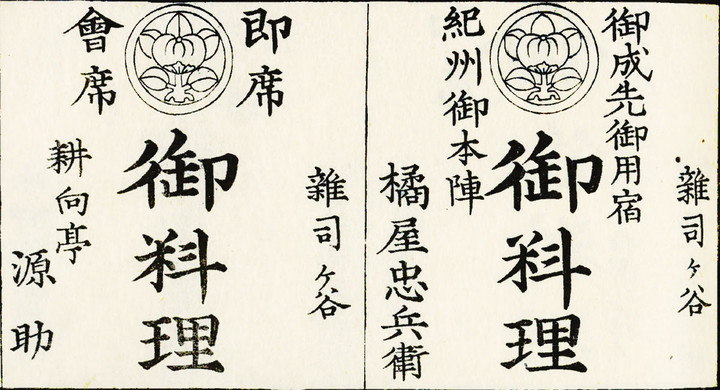 雜司ヶ谷
御成先御用宿
御料理
紀州御本陣
橘屋忠兵衛
雜司ヶ谷
即席
御料理
會席
耕向亭
源助